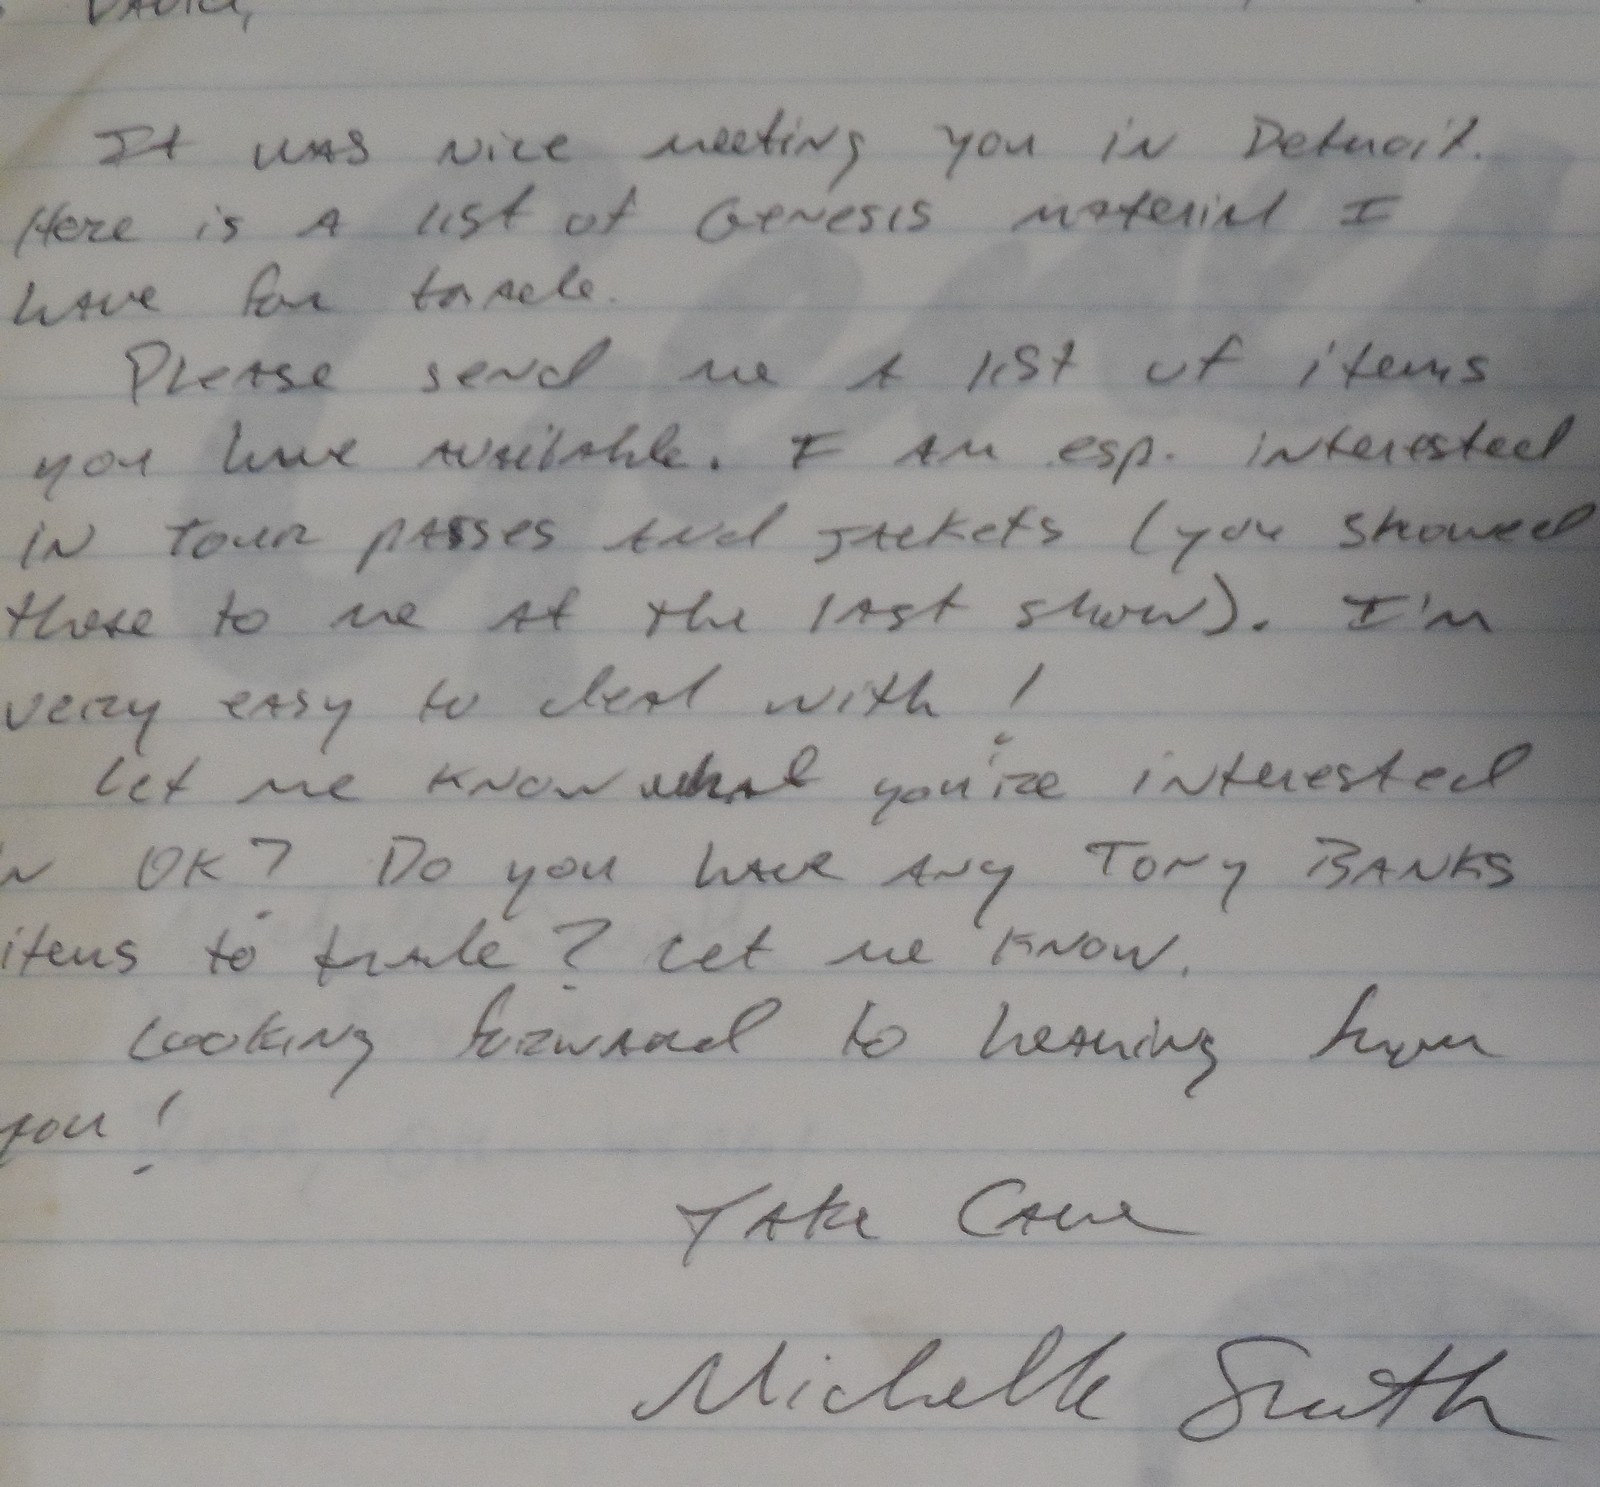 David,
It was nice meeting you in Detroit.
Here is a list of Genesis material I
have for trade.
Please send me a list of items
you have available. I am esp. interested
in tour passes and jackets (you showed
these to me at the last show). I'm
very easy to deal with!
Let me know what you're interested
in OK? Do you have any Tony Banks
items to trade? Let me know.
Looking forward to hearing from
you!
Take Care
Michelle Smith